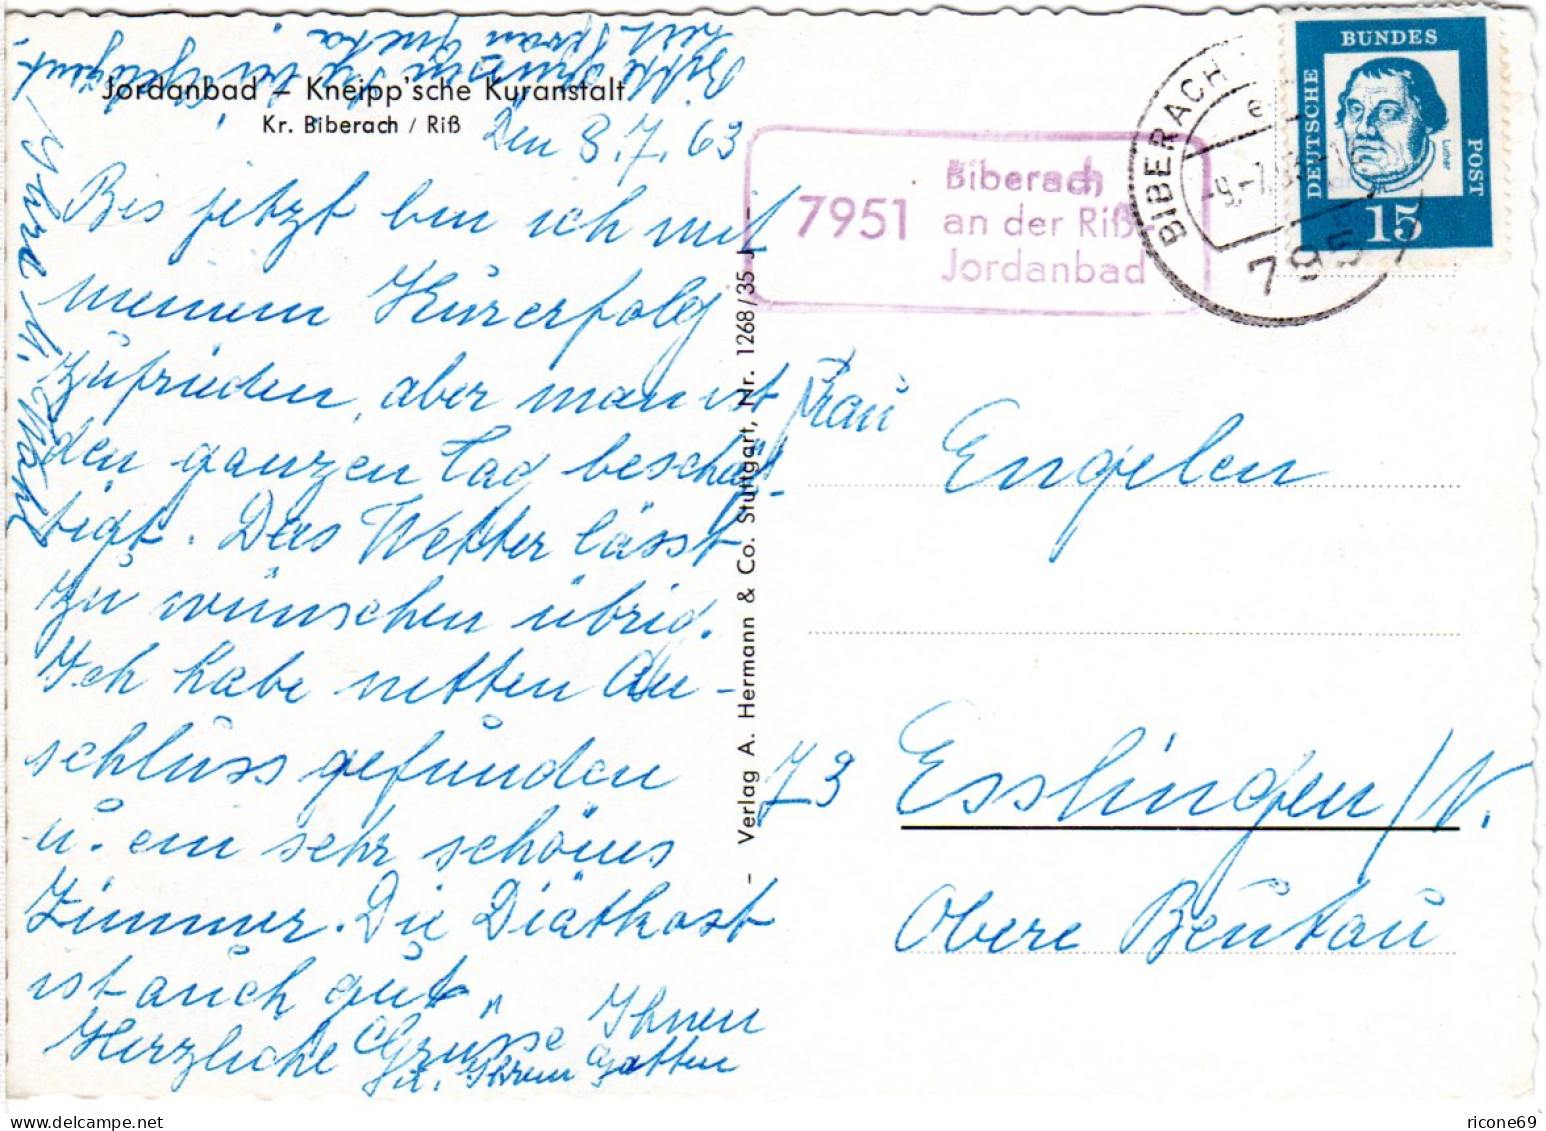 Jordanbad – Kneipp'sche Kuranstalt
Kr. Biberach / Riß
Den 8.7.63
Bis jetzt bin ich mit
meinem Kurerfolg
zufrieden, aber man ist
den ganzen Tag beschäf-
tigt. Das Wetter lässt
zu wünschen übrig.
Ich habe netten An-
schluss gefunden
u. ein sehr schönes
Zimmer. Die Diätkost
ist auch gut.
Herzliche Grüsse Ihnen
u. Ihrem Gatten
Ihre M.
Bitte grüssen Sie bei Gelegenh.
Frau
- Verlag A. Hermann & Co. Stuttgart, Nr. 1268/35 J -
7951
Biberach
an der Riß-
Jordanbad
BIBERACH
-9.-7.63-
795
DEUTSCHE
BUNDES
POST
Luther
15
Frau
Engelen
73 Esslingen/N.
Obere Beutau
ricone69